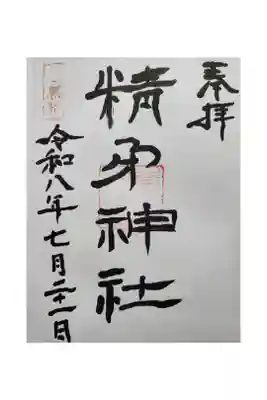 奉拝
精矛神社
令和八年七月二十一日